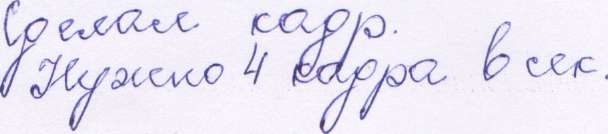 Сделал кадр.
Нужно 4 кадра в сек.